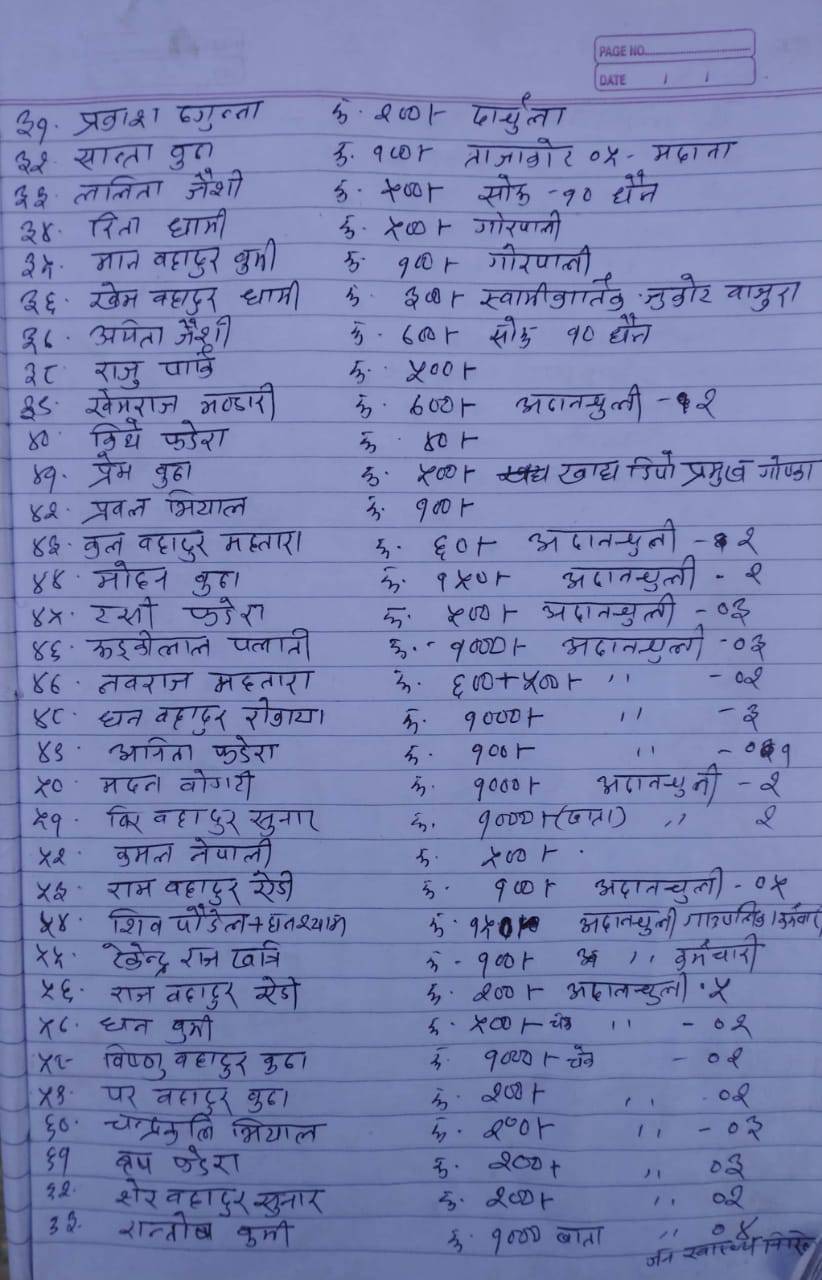 PAGE NO.
DATE / /
३१. प्रकाश ठगुन्ना रु. २००/- दार्चुला
३२. सान्ता बुढा रु. १००/- ताजाकोट ०५ - मदाना
३३. ललिता जैशी रु. ५००/- सोरु - १० धैन
३४. रिता धामी रु. ५००/- गोरपानी
३५. मान बहादुर कुमी रु. १००/- गोरपानी
३६. खेम बहादुर धामी रु. ३००/- स्वामीकार्तिक जुकोट बाजुरा
३७. अमिता जैशी रु. ७००/- सोरु १० धैन
३८ राजु पार्कि रु. ५००/-
३९. खेमराज भण्डारी रु. ७००/- अदानचुली - २
४०. फडेरा रु. ४०/-
४१. प्रेम बुढा रु. ५००/- खाद्य डिपो प्रमुख
४२. प्रवल भियाल रु. १००/-
४३. कुल बहादुर महतारा रु. ६०/- अदानचुली - २
४४. मोहन बुढा रु. १५०/- अदानचुली - २
४५. फडेरा रु. ५००/- अदानचुली - ०३
४६. रु. - १०००/- अदानचुली - ०३
४७. नवराज महतारा रु. ६००+५००/- ,, - ०२
४८. धन बहादुर रोकाया रु. १०००/- ,, - ३
४९. फडेरा रु. १००/- ,, - ०१
५०. मदन बोगटी रु. १०००/- अदानचुली - २
५१. बिर बहादुर सुनार रु. १०००/- (खाता) ,, २
५२. कमल नेपाली रु. ५००/-
५३. राम बहादुर ऐडी रु. १००/- अदानचुली - ०५
५४. शिव पौडेल + घनश्याम रु. अदानचुली
५५. टेकेन्द्र राज खत्रि रु. - १००/- ,, कर्मचारी
५६. राज बहादुर ऐडी रु. २००/- अदानचुली . ५
५७. धन कुमी रु. ५००/- चेक ,, - ०२
५८. विष्णु बहादुर बुढा रु. १०००/- चेक - ०२
५९. पर बहादुर बुढा रु. २००/- ,, ०२
६०. चन्द्रकलि भियाल रु. २००/- ,, - ०३
६१ रुप फडेरा रु. २००/- ,, ०३
६२. शेर बहादुर सुनार रु. २००/- ,, ०२
६३. सन्तोष कुमी रु. १००० खाता ,, ०४
जन स्वास्थ्य